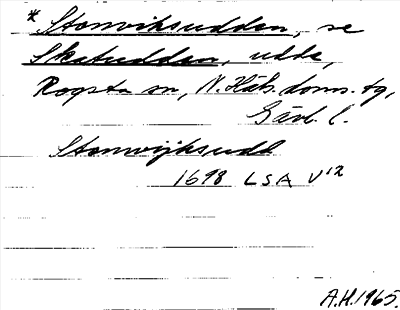 * Storviksudden, se
Skatudden, udde,
Rogsta sn, N. Häls. doms. tg,
Gävb. l.
Storwijksudd
1698 LSA V¹²
A.H. 1965.